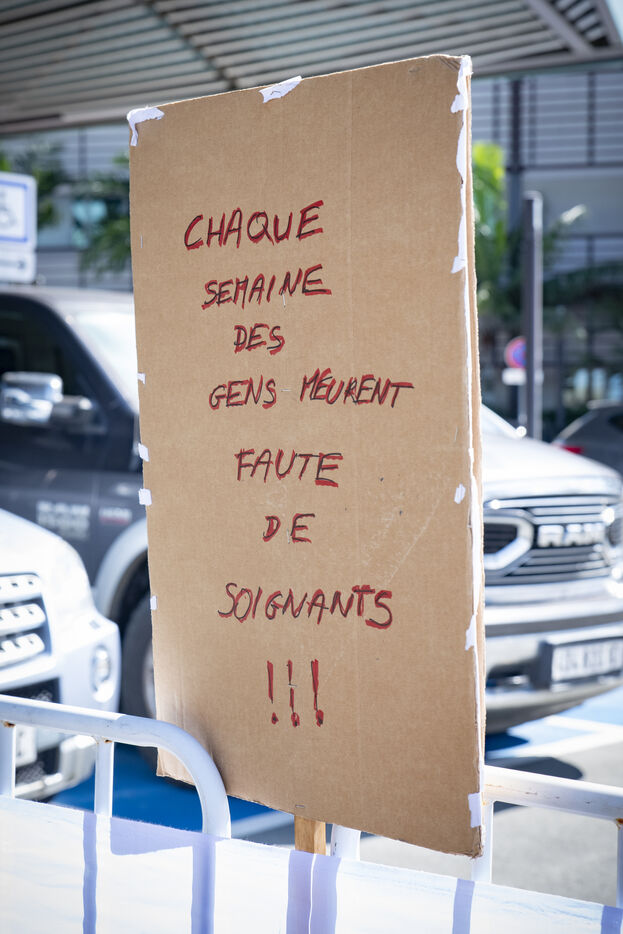 CHAQUE
SEMAINE
DES
GENS MEURENT
FAUTE
DE
SOIGNANTS
!!!
RAM
RAM